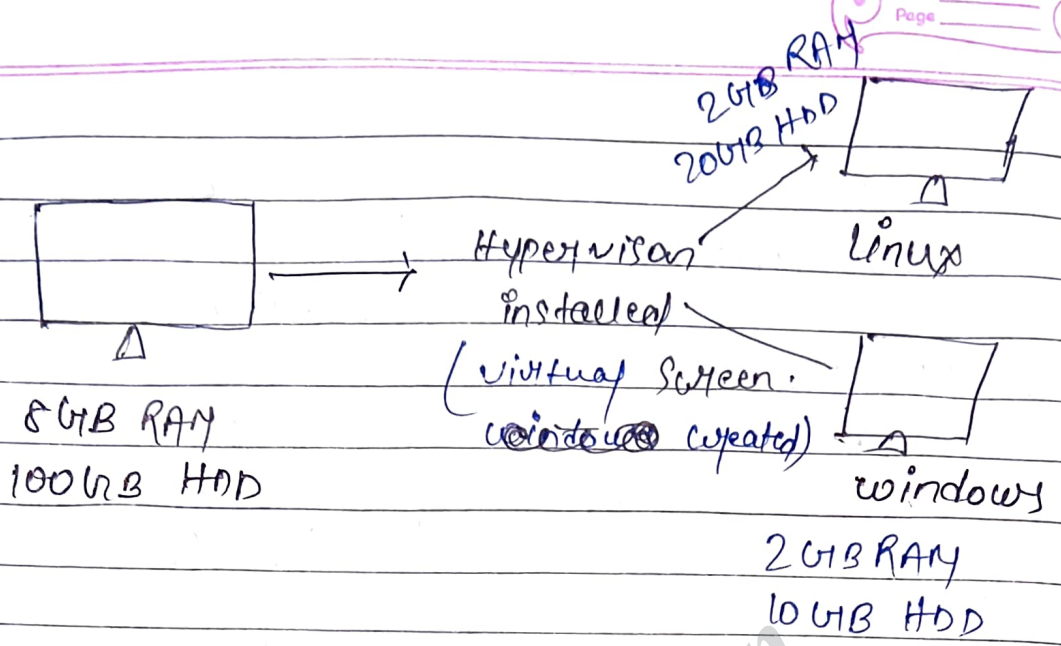 Page
2GB RAM
20GB HDD
Linux
Hypervisor
installed
(virtual Screen.
created)
8GB RAM
100GB HDD
windows
2GB RAM
10GB HDD